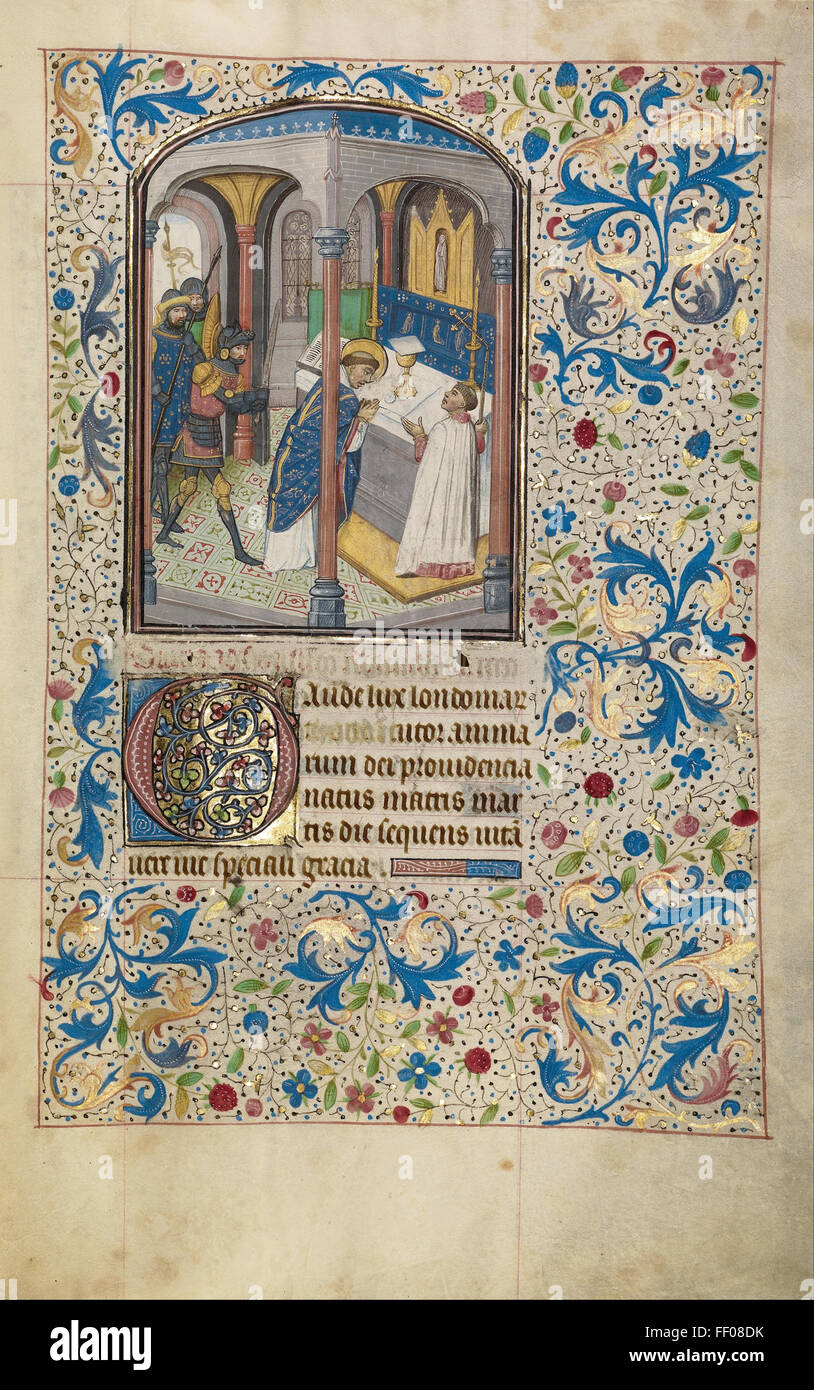 Gaude lux londoniar
tutor anima
rum dei prouidencia
natus martis mar
tis die sequens uitā
speciali gracia
a
alamy
alamy
Image ID: FF08DK
www.alamy.com